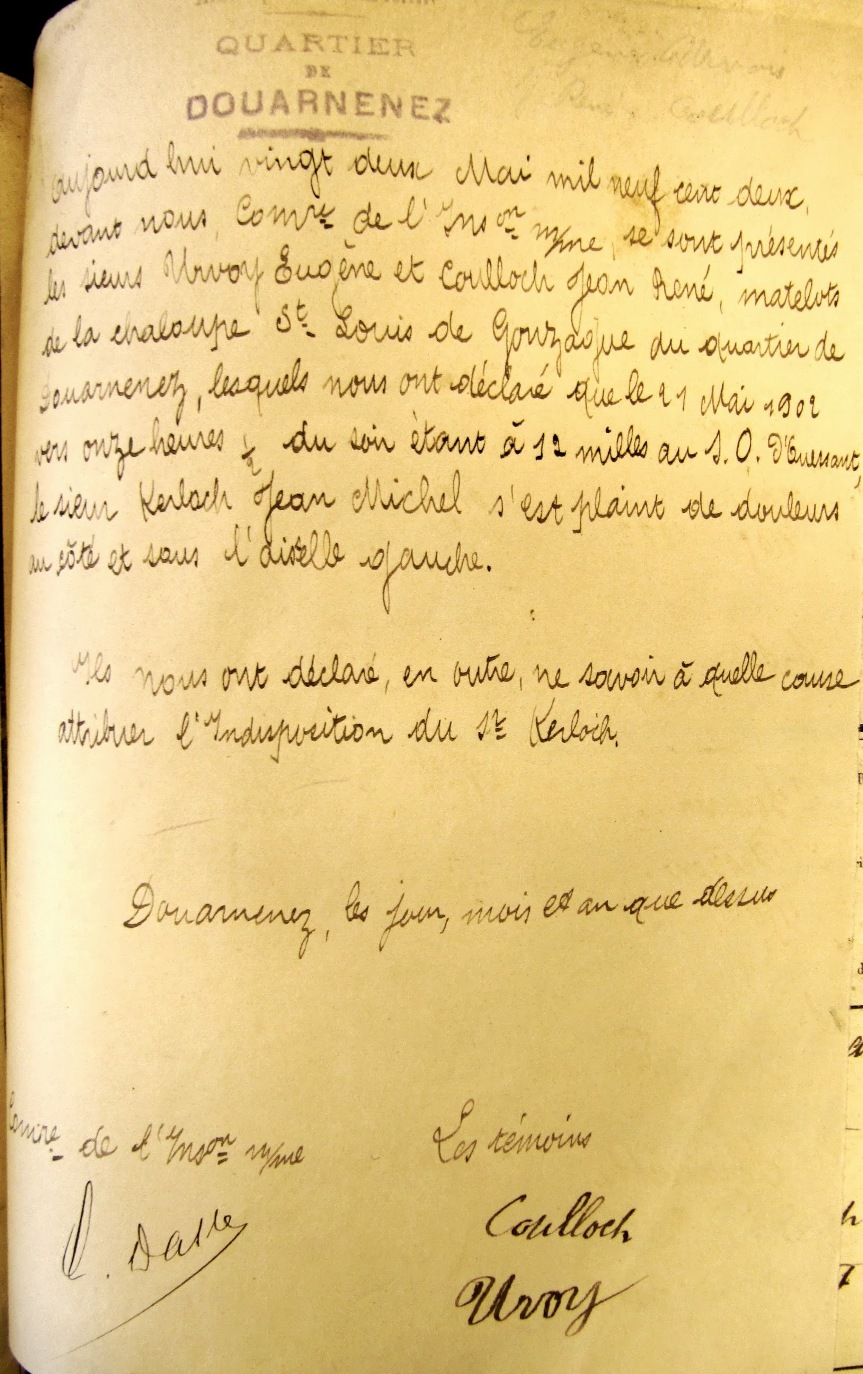 QUARTIER
DE
DOUARNENEZ
aujourd'hui vingt deux Mai mil neuf cent deux,
devant nous, Comre de l'Inson mme, se sont présentés
les sieurs Urvoy Eugène et Coulloch Jean René, matelots
de la chaloupe St Louis de Gonzague du quartier de
Douarnenez, lesquels nous ont déclaré que le 21 Mai 1902
vers onze heures ½ du soir étant à 12 milles au S. O. D'Ouessant,
le sieur Kerloch Jean Michel s'est plaint de douleurs
au côté et sous l'aisselle gauche.
Ils nous ont déclaré, en outre, ne savoir à quelle cause
attribuer l'Indisposition du Sr Kerloch.
Douarnenez, les jour, mois et an que dessus
Comre de l'Inson mme
Les témoins
Coulloch
Urvoy